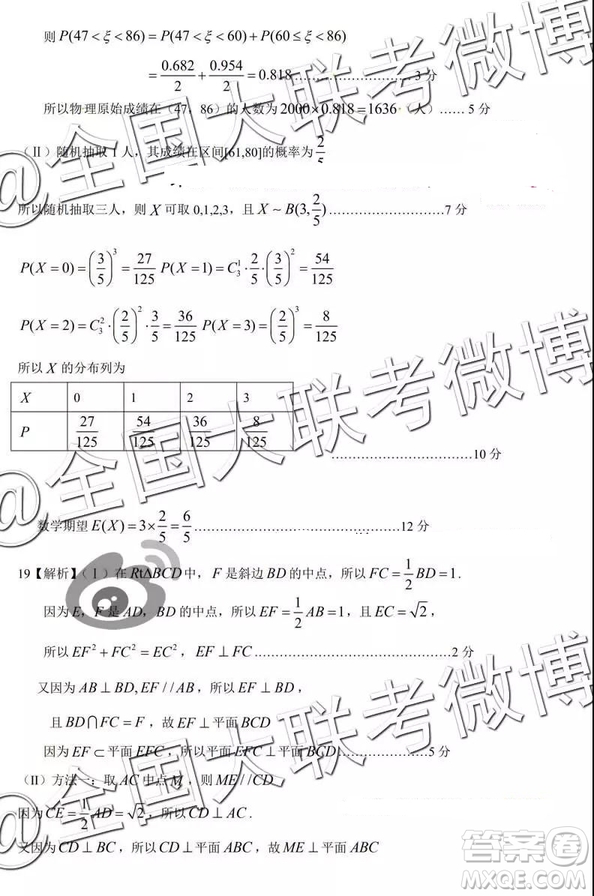 则 P(47<ξ<86)=P(47<ξ<60)+P(60≤ξ<86)
=0.682/2+0.954/2=0.818……………………3 分
所以物理原始成绩在（47，86）的人数为 2000×0.818=1636（人）…… 5 分
（Ⅱ）随机抽取 1 人，其成绩在区间[61,80]的概率为 2/5
所以随机抽取三人，则 X 可取 0,1,2,3，且 X～B(3,2/5)………………………7 分
P(X=0)=(3/5)³=27/125 P(X=1)=C₃¹·2/5·(3/5)²=54/125
P(X=2)=C₃²·(2/5)²·3/5=36/125 P(X=3)=(2/5)³=8/125
所以 X 的分布列为
X 0 1 2 3
P 27/125 54/125 36/125 8/125
…………………10 分
数学期望 E(X)=3×2/5=6/5………………………………………12 分
19【解析】（Ⅰ）在 Rt∆BCD 中，F 是斜边 BD 的中点，所以 FC=1/2BD=1.
因为 E，F 是 AD，BD 的中点，所以 EF=1/2AB=1，且 EC=√2，
所以 EF²+FC²=EC²，EF⊥FC………………………………2 分
又因为 AB⊥BD，EF//AB，所以 EF⊥BD，
且 BD∩FC=F，故 EF⊥平面 BCD
因为 EF⊂平面 EFC，所以平面 EFC⊥平面 BCD…………………5 分
（II）方法一：取 AC 中点 M，则 ME//CD
因为 CE=1/2AD=√2，所以 CD⊥AC.
又因为 CD⊥BC，所以 CD⊥平面 ABC，故 ME⊥平面 ABC
@全国大联考微博
@全国大联考微博
@全国大联考微博
答案圈
MXQE.COM